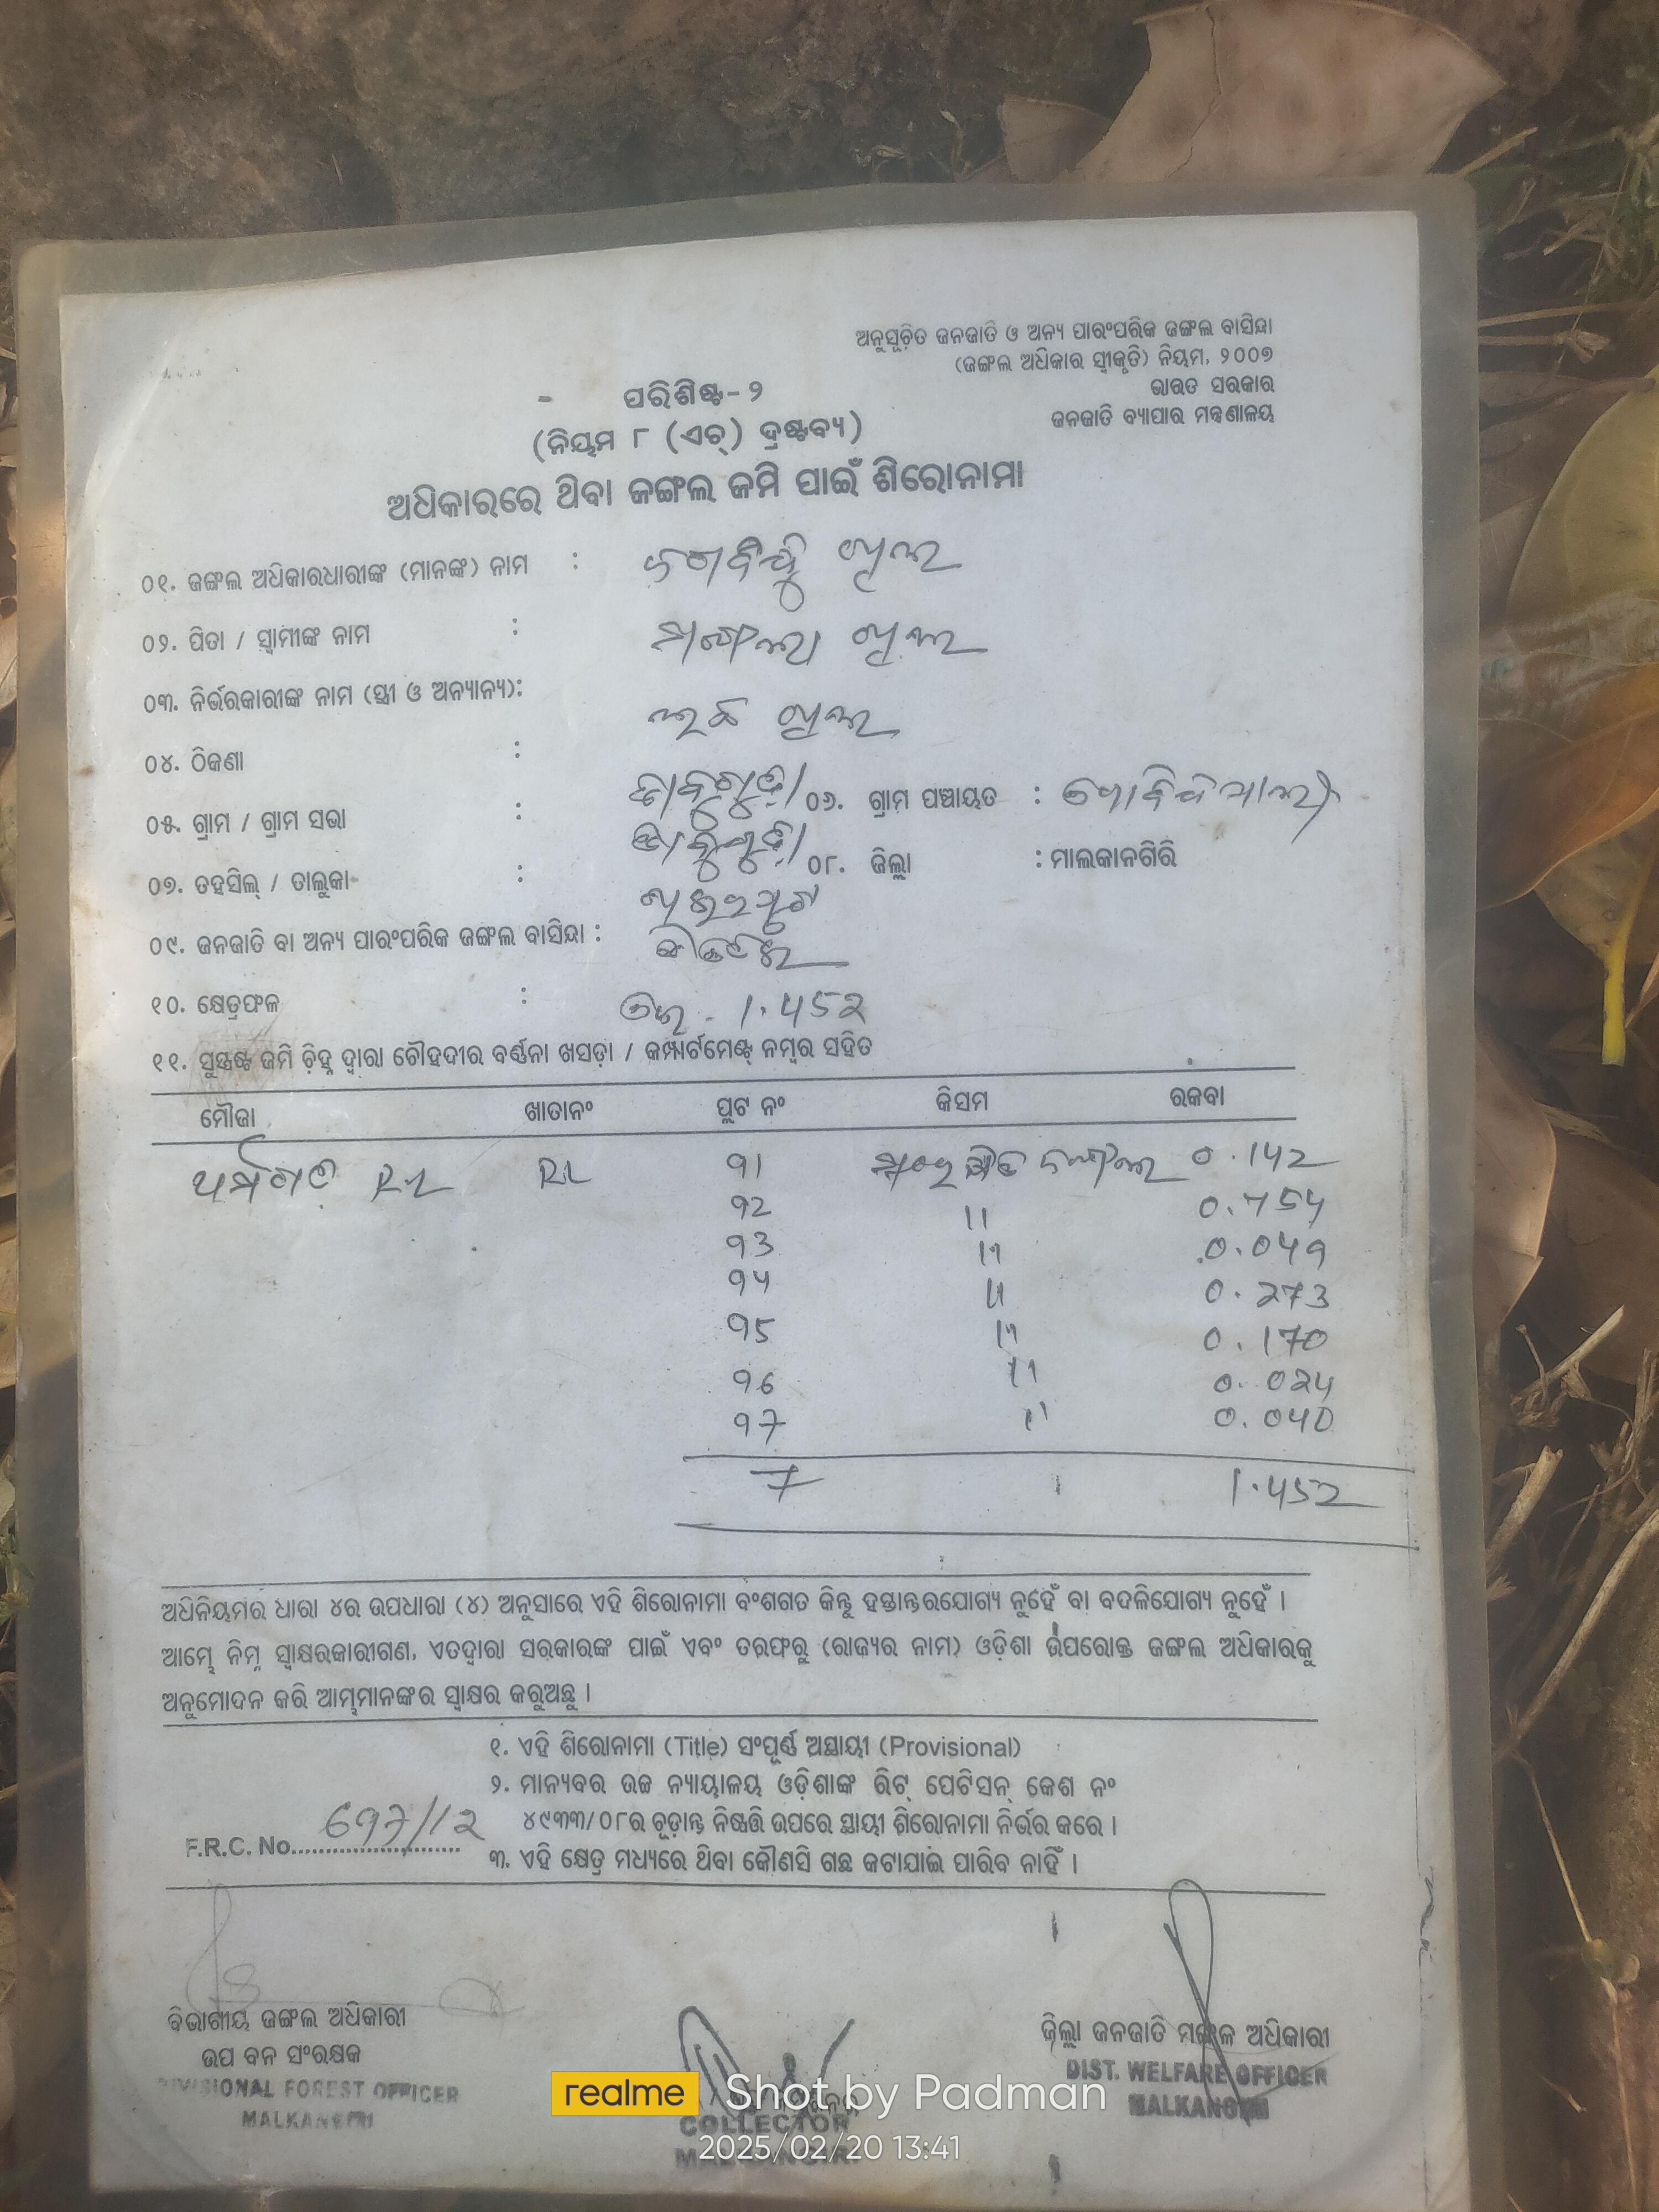 ଅନୁସୂଚିତ ଜନଜାତି ଓ ଅନ୍ୟ ପାରଂପରିକ ଜଙ୍ଗଲ ବାସିନ୍ଦା
(ଜଙ୍ଗଲ ଅଧିକାର ସ୍ୱୀକୃତି) ନିୟମ, ୨୦୦୭
ଭାରତ ସରକାର
ଜନଜାତି ବ୍ୟାପାର ମନ୍ତ୍ରଣାଳୟ
ପରିଶିଷ୍ଟ-୨
(ନିୟମ ୮ (ଏଚ୍) ଦ୍ରଷ୍ଟବ୍ୟ)
ଅଧିକାରରେ ଥିବା ଜଙ୍ଗଲ ଜମି ପାଇଁ ଶିରୋନାମା
୦୧. ଜଙ୍ଗଲ ଅଧିକାରଧାରୀଙ୍କ (ମାନଙ୍କ) ନାମ :
୦୨. ପିତା / ସ୍ୱାମୀଙ୍କ ନାମ :
୦୩. ନିର୍ଭରକାରୀଙ୍କ ନାମ (ସ୍ତ୍ରୀ ଓ ଅନ୍ୟାନ୍ୟ):
୦୪. ଠିକଣା :
୦୫. ଗ୍ରାମ / ଗ୍ରାମ ସଭା : ୦୬. ଗ୍ରାମ ପଞ୍ଚାୟତ :
୦୭. ତହସିଲ୍ / ତାଲୁକା : ୦୮. ଜିଲ୍ଲା : ମାଲକାନଗିରି
୦୯. ଜନଜାତି ବା ଅନ୍ୟ ପାରଂପରିକ ଜଙ୍ଗଲ ବାସିନ୍ଦା :
୧୦. କ୍ଷେତ୍ରଫଳ : 1.452
୧୧. ସୁସ୍ପଷ୍ଟ ଜମି ଚିହ୍ନ ଦ୍ୱାରା ଚୌହଦୀର ବର୍ଣ୍ଣନା ଖସଡ଼ା / କମ୍ପାର୍ଟମେଣ୍ଟ୍ ନମ୍ବର ସହିତ
ମୌଜା ଖାତାନଂ ପ୍ଲଟ ନଂ କିସମ ରକବା
RL RL 91 0.142
92 11 0.754
93 11 0.049
94 11 0.273
95 11 0.170
96 11 0.024
97 11 0.040
7 1.452
ଅଧିନିୟମର ଧାରା ୪ର ଉପଧାରା (୪) ଅନୁସାରେ ଏହି ଶିରୋନାମା ବଂଶଗତ କିନ୍ତୁ ହସ୍ତାନ୍ତରଯୋଗ୍ୟ ନୁହେଁ ବା ବଦଳିଯୋଗ୍ୟ ନୁହେଁ ।
ଆମ୍ଭେ ନିମ୍ନ ସ୍ୱାକ୍ଷରକାରୀଗଣ, ଏତଦ୍ୱାରା ସରକାରଙ୍କ ପାଇଁ ଏବଂ ତରଫରୁ (ରାଜ୍ୟର ନାମ) ଓଡ଼ିଶା ଉପରୋକ୍ତ ଜଙ୍ଗଲ ଅଧିକାରକୁ
ଅନୁମୋଦନ କରି ଆମ୍ଭମାନଙ୍କର ସ୍ୱାକ୍ଷର କରୁଅଛୁ ।
୧. ଏହି ଶିରୋନାମା (Title) ସଂପୂର୍ଣ୍ଣ ଅସ୍ଥାୟୀ (Provisional)
୨. ମାନ୍ୟବର ଉଚ୍ଚ ନ୍ୟାୟାଳୟ ଓଡ଼ିଶାଙ୍କ ରିଟ୍ ପେଟିସନ୍ କେଶ ନଂ
୪୯୩୩/୦୮ର ଚୂଡ଼ାନ୍ତ ନିଷ୍ପତ୍ତି ଉପରେ ସ୍ଥାୟୀ ଶିରୋନାମା ନିର୍ଭର କରେ ।
F.R.C. No. 697/12
୩. ଏହି କ୍ଷେତ୍ର ମଧ୍ୟରେ ଥିବା କୌଣସି ଗଛ କଟାଯାଇ ପାରିବ ନାହିଁ ।
ବିଭାଗୀୟ ଜଙ୍ଗଲ ଅଧିକାରୀ
ଉପ ବନ ସଂରକ୍ଷକ
DIVISIONAL FOREST OFFICER
MALKANGIRI
COLLECTOR
MALKANGIRI
ଜିଲ୍ଲା ଜନଜାତି ମଙ୍ଗଳ ଅଧିକାରୀ
DIST. WELFARE OFFICER
MALKANGIRI
realme Shot by Padman
2025/02/20 13:41